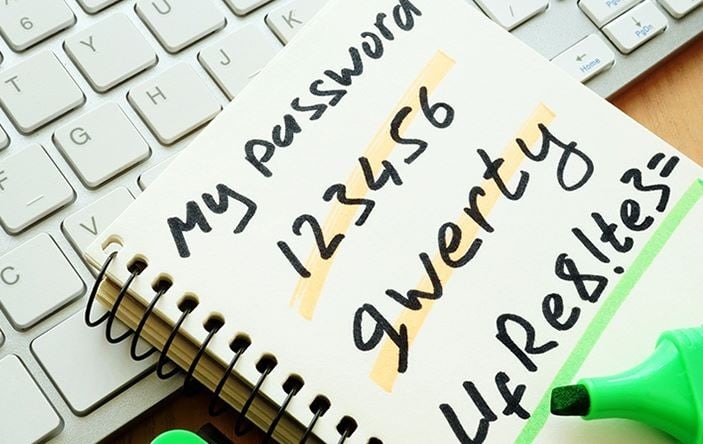 My password
123456
qwerty
UfRe8!te3=
6
T
Y
U
K
G
H
J
F
V
C
Home
PgUp
PgDn